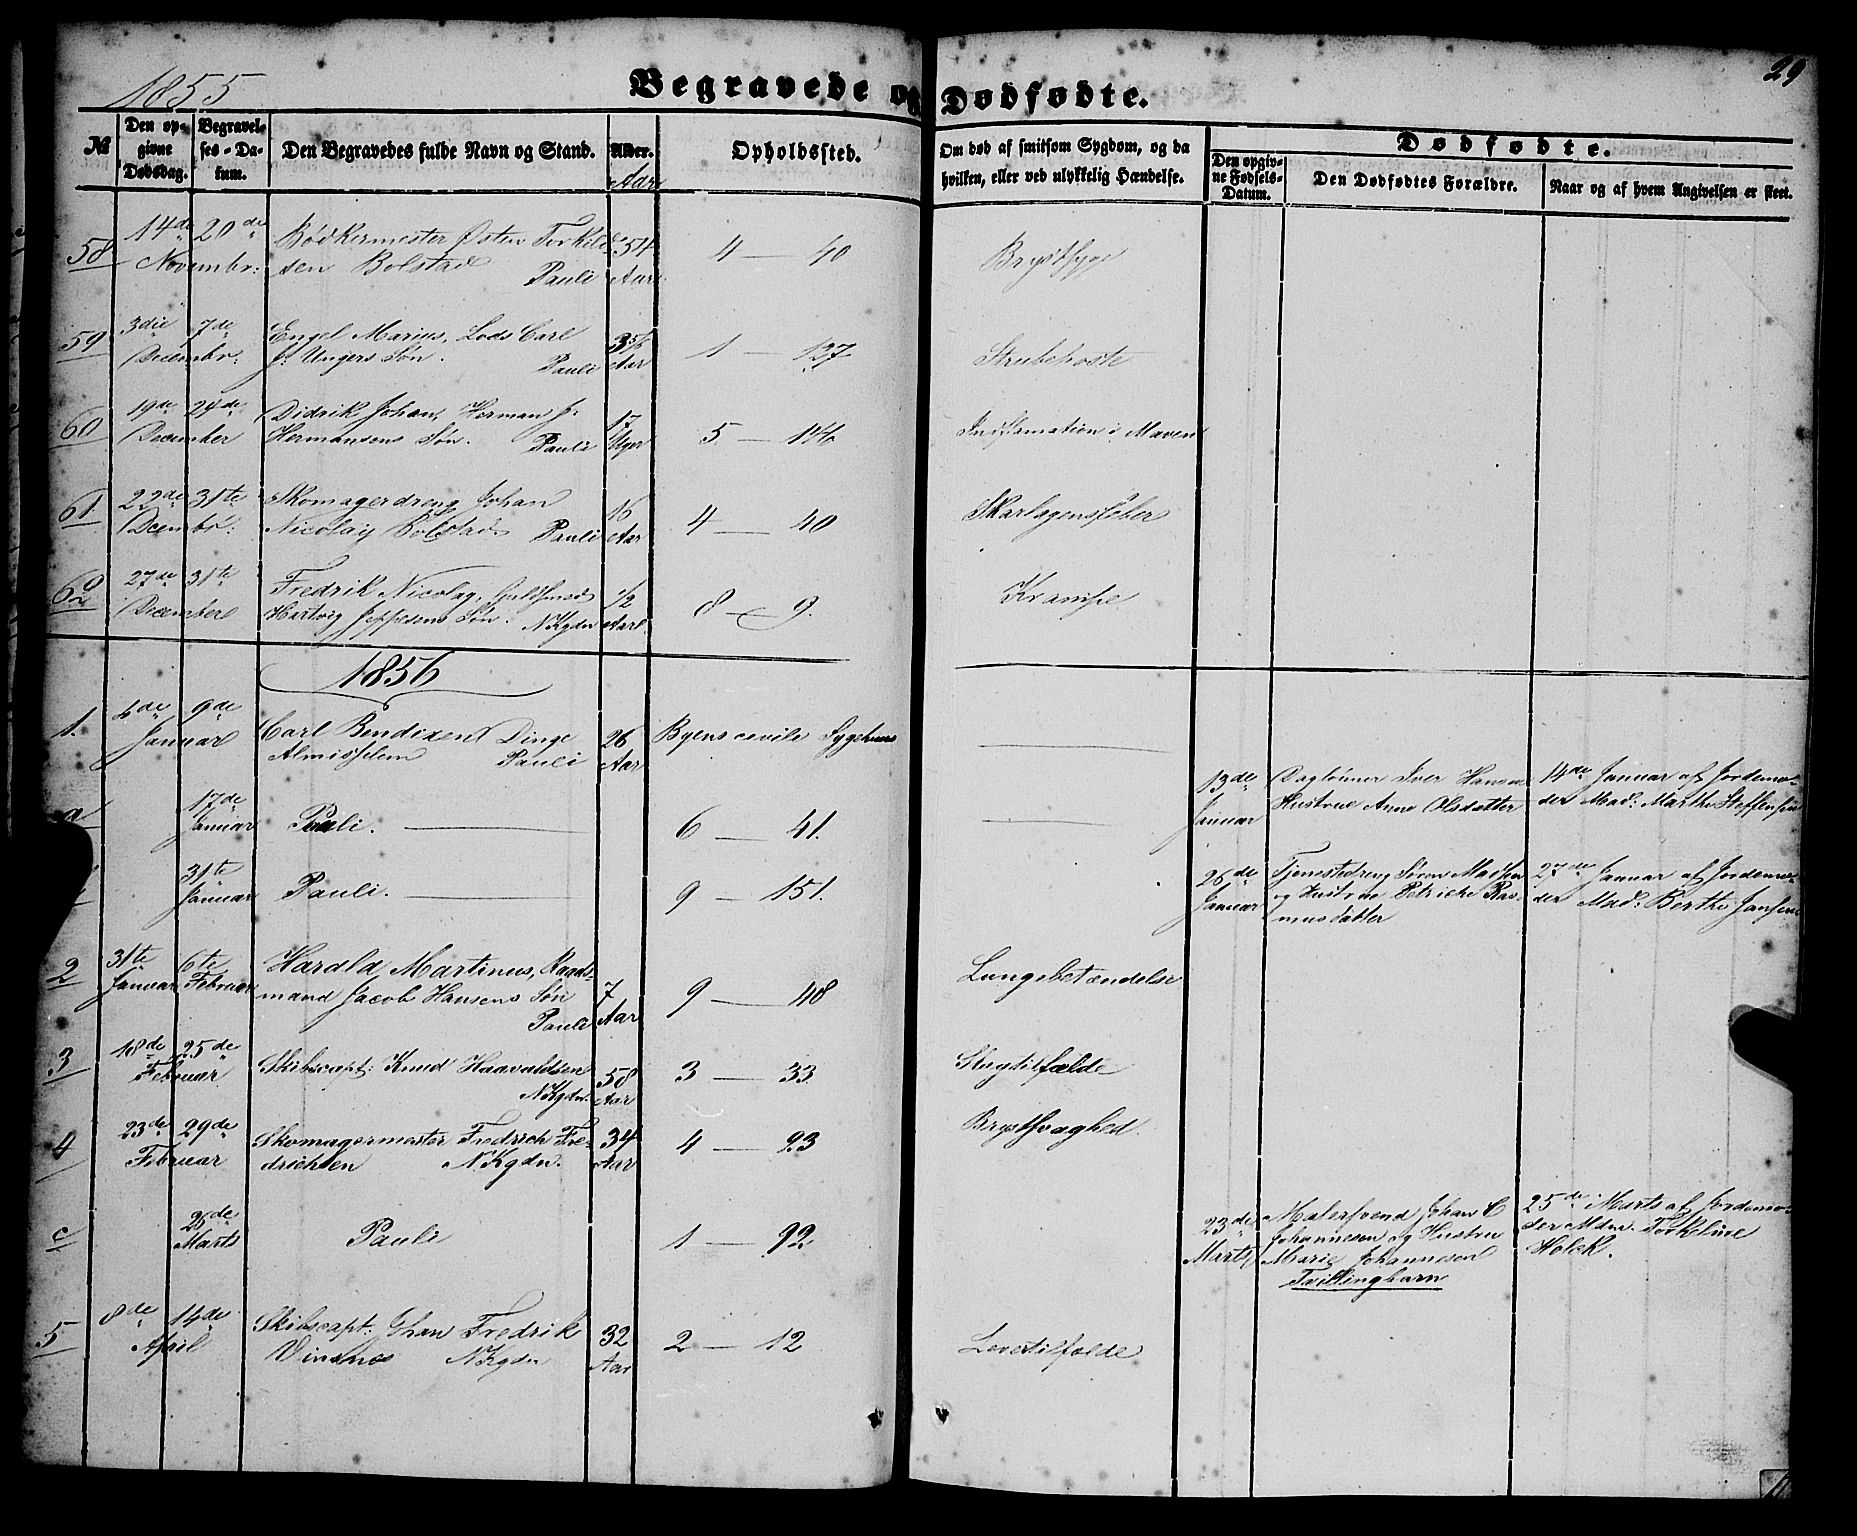 1855
Begravede og Dødfødte.
29
№
Den opgivne Dødsdag.
Begravelses-Datum.
Den Begravedes fulde Navn og Stand.
Alder. Aar
Opholdssted.
Om død af smitsom Sygdom, og da hvilken, eller ved ulykkelig Hændelse.
Dødfødte.
Den opgivne Fødsels-Datum.
Den Dødfødtes Forældre.
Naar og af hvem Angivelsen er skeet.
58 14de 20de Bødkermester Østen Torkild- 54 4 — 40 Brystsyge
Novembr: sen Bolstad Pauli Aar
59 3die 7de Engel Marius, Lods Carl 1 — 127 Strubehoste
Decembr: J. Ungers Søn. Pauli Aar
60 19de 24de Didrik Johan, Herman J. 17 5 — Inflamation i Maven
December Hermansens Søn. Pauli Uger
61 22de 31te Skomagerdreng Johan 16 4 — 40 Skarlagensfeber
Decembr. Nicolay Bolstad Pauli Aar
62 27de 31te Fredrik Nicolay, Guldsmed 1/2 8 — 9. Krampe
December Hartvig Jeppesens Søn. NKgdn Aar
1856
1. 4de 9de Carl Bendixen Dinge 26 Byens civile Sygehuus
Januar Pauli Aar
a 17de Januar Pauli. 6 — 41.
13de Januar Daglønner Iver Hansen
Hustrue Anne Olsdatter
14de Januar af Jordemo-
der Mad: Marthe Steffensen
31te Januar Pauli. 9 — 151.
26de Januar Tjenestedreng Søren Madsen
og Hustrue Petriche Ras-
musdatter
27de Januar af Jordemo-
der Mad: Berthe Jansen
2 31te 6te Harald Martinus, Raads- 7 9 — 48 Lungebetændelse
Januar Februar mand Jacob Hansens Søn Aar
Pauli
3 18de 25de Skibscapt: Knud Haavaldsen 58 3 — 33 Slagtilfælde
Februar NKgdn. Aar
4 23de 29de Skomagermester Fredrich Fre- 34 4 — 23 Brystsvaghed.
Februar drichsen NKgdn. Aar
c 26de Marts Pauli 1 — 92
23de Marts Malersvend Johan C
Johannesen og Hustru
Marie Johannesen
Tvillingbarn
25de Marts af Jordemo-
der Mdm. Torkeline
Holck.
5 8de 14de Skibscapt: Johan Fredrik 32 2 — 12 Levertilfælde
April Vinsnes NKgdn Aar